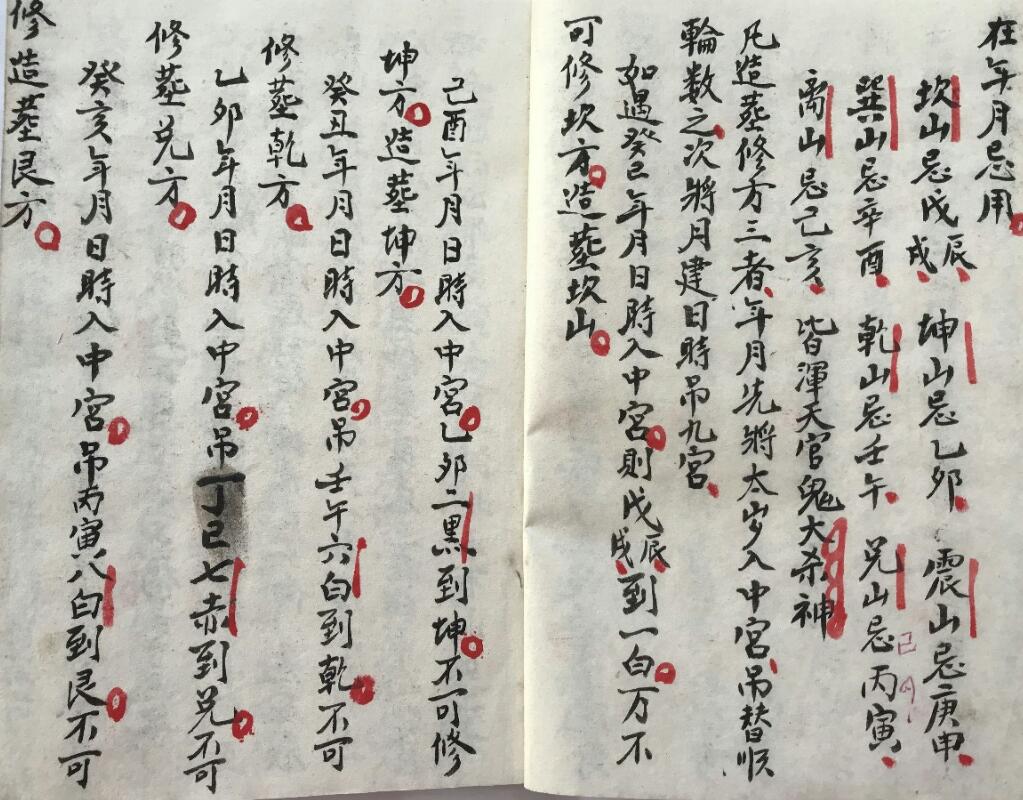 在年月忌用
坎山忌戊辰戌 坤山忌乙卯 震山忌庚申
巽山忌辛酉 乾山忌壬午 兑山忌丙寅
离山忌己亥 皆渾天官鬼大杀神
凡造葬修方三者年月先將太岁入中宮吊替順
輪数之次將月建日時吊九宮
如遇癸巳年月日時入中宮則戊辰戌到一白万不
可修坎方造葬坎山
己酉年月日時入中宮乙卯二黒到坤不可修
坤方造葬坤方
癸丑年月日時入中宮吊壬午六白到乾不可
修葬乾方
乙卯年月日時入中宮吊丁巳七赤到兑不可
修葬兑方
癸亥年月日時入中宮吊丙寅八白到艮不可
修造葬艮方